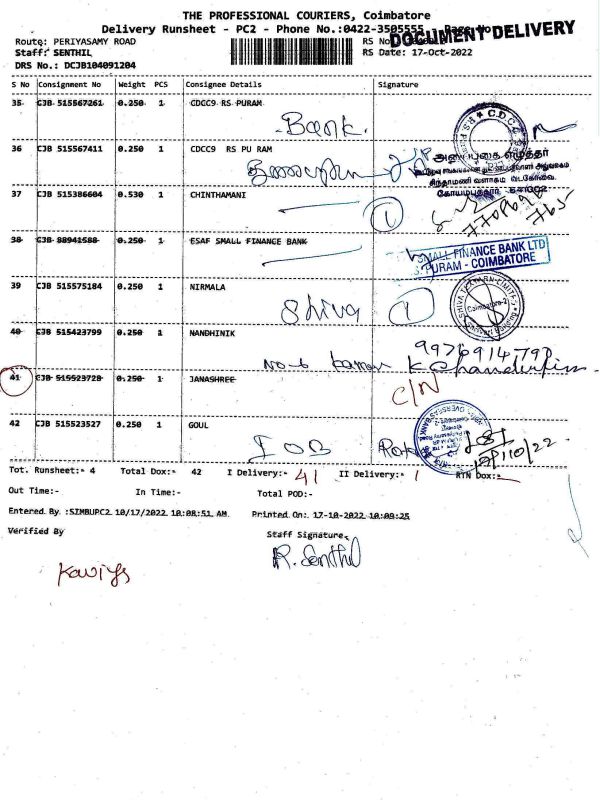 THE PROFESSIONAL COURIERS, Coimbatore
Delivery Runsheet - PC2 - Phone No.:0422-3505555
DOCUMENT DELIVERY
Route: PERIYASAMY ROAD
Staff: SENTHIL
RS Date: 17-Oct-2022
DRS No.: DCJB104091204
S No Consignment No Weight PCS Consignee Details Signature
35 CJB 515567261 0.250 1 CDCC9 RS PURAM
Bank.
36 CJB 515567411 0.250 1 CDCC9 RS PU RAM
37 CJB 515386604 0.530 1 CHINTHAMANI
1
38 CJB 88941588 0.250 1 ESAF SMALL FINANCE BANK
SMALL FINANCE BANK LTD
PURAM - COIMBATORE
39 CJB 515575184 0.250 1 NIRMALA
Shiva 1
40 CJB 515423799 0.250 1 NANDHINIK
41 CJB 515523728 0.250 1 JANASHREE
C/N
42 CJB 515523527 0.250 1 GOUL
IOB
Tot. Runsheet:- 4 Total Dox:- 42 I Delivery:- 41 II Delivery:- 1 RTN Dox:-
Out Time:- In Time:- Total POD:-
Entered By :SIMBUPC2 10/17/2022 10:08:51 AM Printed On: 17-10-2022 10:09:25
Verified By Staff Signature
R. Senthil